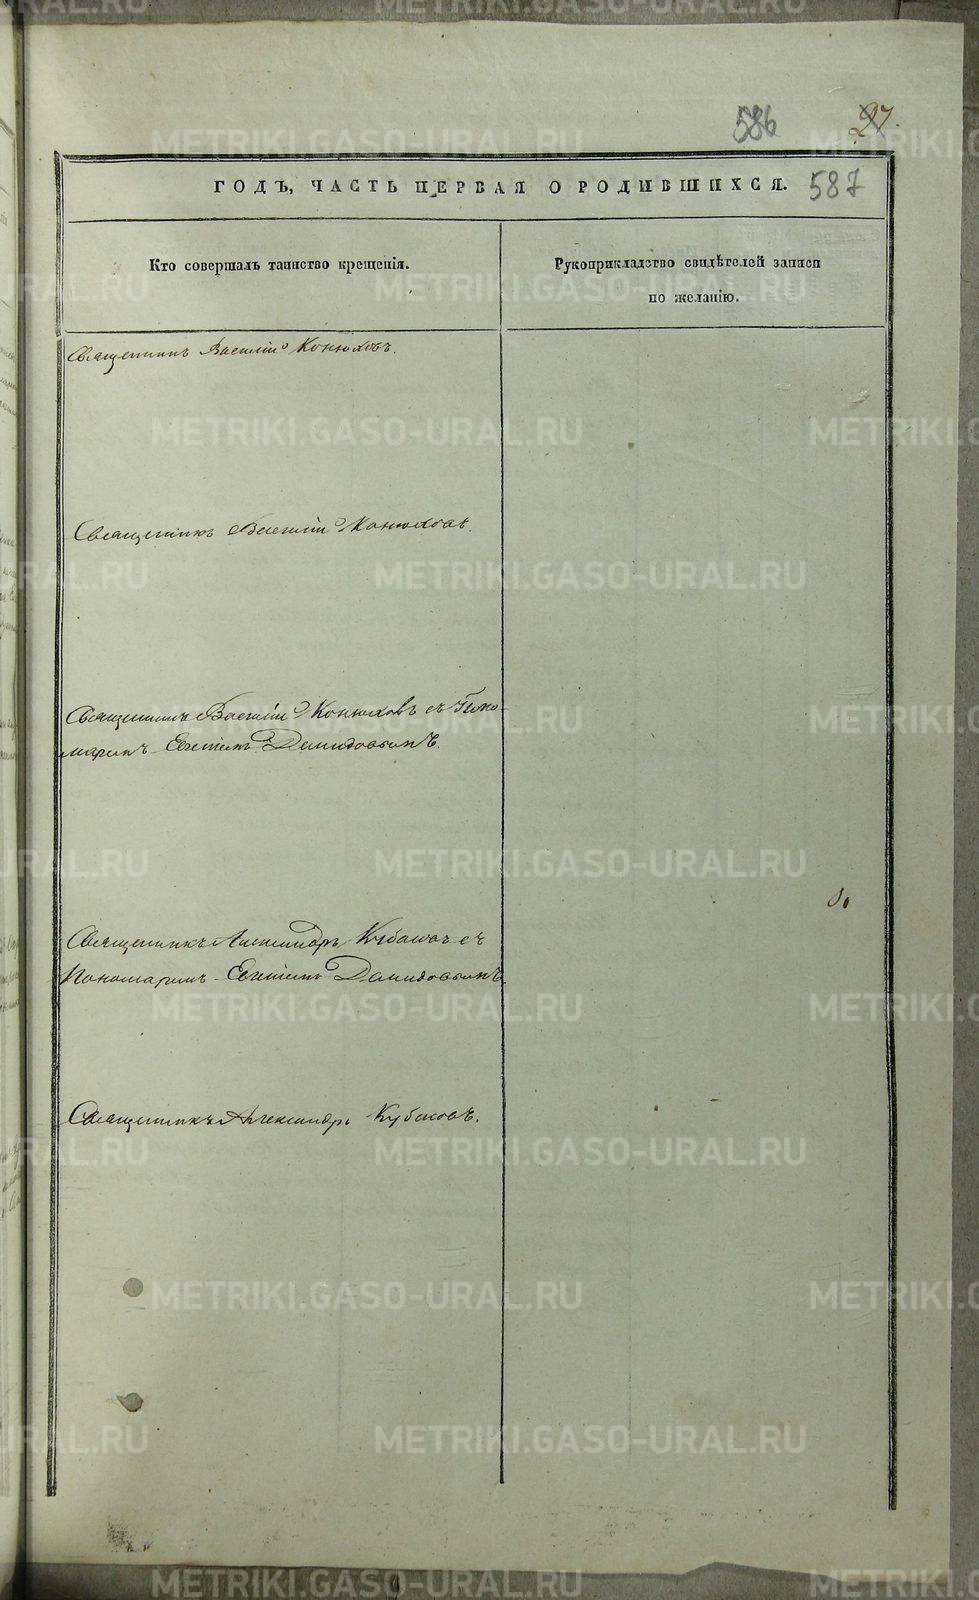 586
27.
ГОДЪ, ЧАСТЬ ПЕРВАЯ О РОДИВШИХСЯ. 587
Кто совершалъ таинство крещенія.
Рукоприкладство свидѣтелей записи
по желанію.
Священникъ Василій Конюховъ.
Священникъ Василій Конюховъ.
Священникъ Василій Конюховъ съ Поно-
маремъ Демидовымъ.
Священникъ Александръ Кубасовъ съ
Пономаремъ Демидовымъ.
Священникъ Александръ Кубасовъ.
METRIKI.GASO-URAL.RU